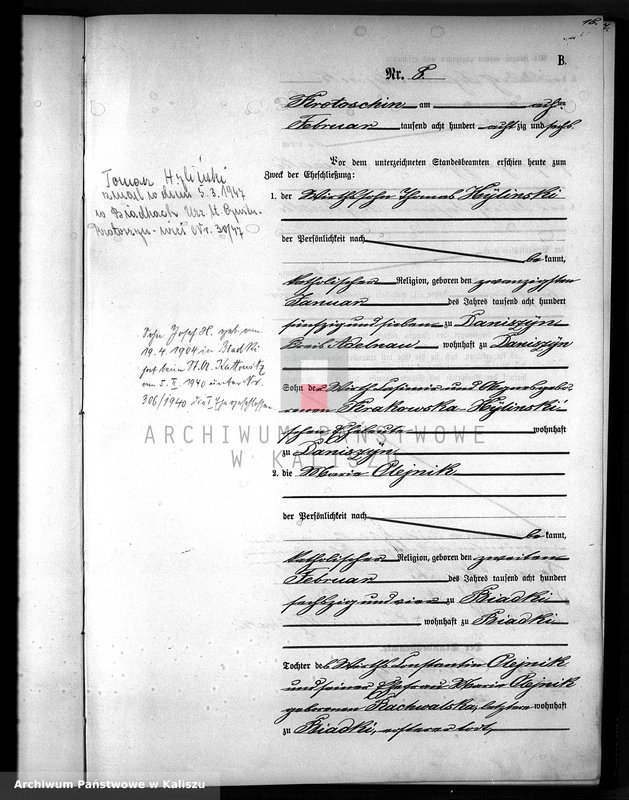 B.
Nr. 8.
Krotoschin am achten
Februar tausend acht hundert achtzig und sechs.
Vor dem unterzeichneten Standesbeamten erschien heute zum
Zweck der Eheschließung:
1. der Wirthssohn Thomas Hÿlinski
der Persönlichkeit nach
be kannt,
katholischer Religion, geboren den zwanzigsten
Januar des Jahres tausend acht hundert
fünfzig und sieben zu Daniszÿn
Kreis Adelnau wohnhaft zu Daniszÿn
Sohn der Wirth und Agnes gebo-
renen Krakowska Hÿlinski
schen Eheleute wohnhaft
zu Daniszÿn
2. die Maria Olejnik
der Persönlichkeit nach
be kannt,
katholischer Religion, geboren den zweiten
Februar des Jahres tausend acht hundert
sechszig und vier zu Biadki
wohnhaft zu Biadki
Tochter des Wirth Constantin Olejnik
und seiner Ehefrau Maria Olejnik
geborenen Rachwalska, letztere wohnhaft
zu Biadki, ersterer todt,
Tomasz Hyliński
zmarł w dniu 5.3.1947
w Biadkach Urz. St. Cywiln.
Krotoszyn-wieś Nr. 30/47
Sohn Josef H. geb. am
19.4.1904 in Biadki
hat beim St.A. Kattowitz
am 5. 1940 unter Nr.
306/1940 die I Ehe geschlossen
ARCHIWUM PAŃSTWOWE
W KALISZU
Archiwum Państwowe w Kaliszu